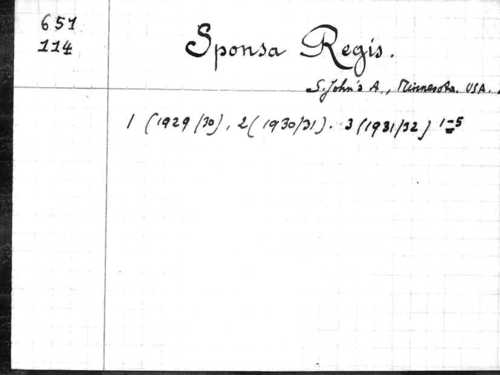 651
114
Sponsa Regis.
S. John's A., Minnesota. USA.
1 (1929/30), 2(1930/31). 3(1931/32) 1-5